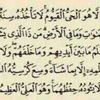 لَّا هُوَ الْحَيُّ الْقَيُّومُ لَا تَأْخُذُهُ سِنَةٌ
وَمَا فِي الْأَرْضِ مَن ذَا
مَا بَيْنَ أَيْدِيهِمْ وَمَا خَلْفَهُمْ وَلَا
إِلَّا بِمَا شَاءَ وَسِعَ كُرْسِيُّهُ
يَئُودُهُ حِفْظُهُمَا وَهُوَ الْعَلِيُّ الْعَظِيمُ